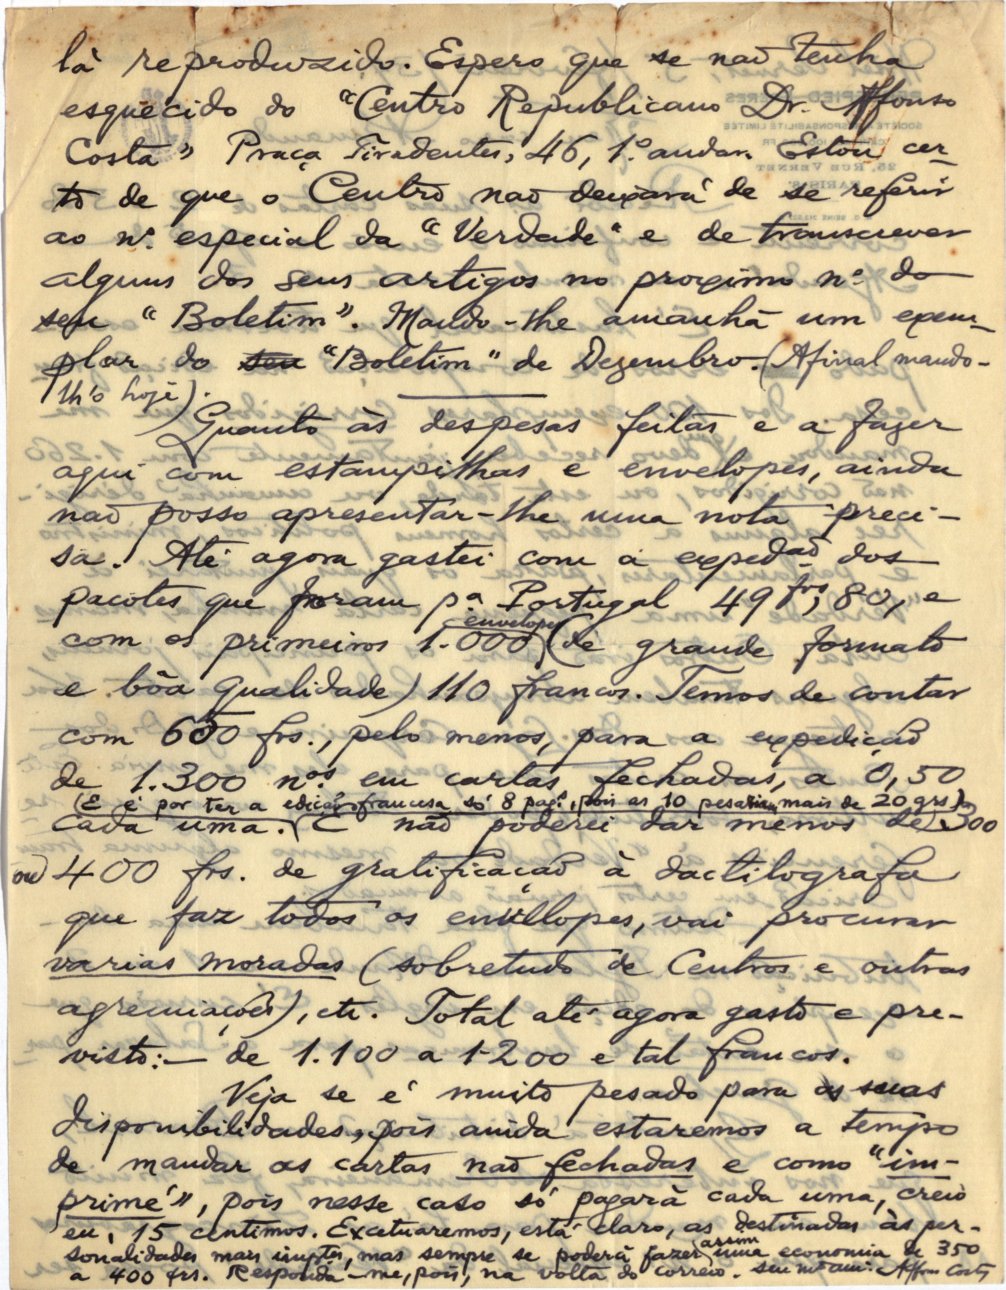 lá reproduzido. Espero que se não tenha
esquecido do "Centro Republicano Dr. Affonso
Costa" Praça Tiradentes, 46, 1º andar. Estou cer-
to de que o Centro não deixará de se referir
ao nº especial da "Verdade" e de transcrever
alguns dos seus artigos no proximo nº do
seu "Boletim". Mando-lhe amanhã um exem-
plar do seu "Boletim" de Dezembro. (Afinal mando-
lh'o hoje).
Quanto ás despesas feitas e a fazer
aqui com estampilhas e envelopes, ainda
não posso apresentar-lhe uma nota preci-
sa. Até agora gastei com a expedão dos
pacotes que foram pa Portugal 49 frs, 80, e
com os primeiros 1.000 envelopes (de grande formato
e bôa qualidade) 110 francos. Temos de contar
com 650 frs., pelo menos, para a expedição
de 1.300 nos em cartas fechadas, a 0,50
(E é por ter a edição francesa só 8 pag., pois as 10 pesariam mais de 20 grs)
cada uma. E não poderei dar menos de 300
ou 400 frs. de gratificação à dactilografa
que faz todos os envellopes, vai procurar
varias moradas (sobretudo de Centros e outras
agremiações), etc. Total até agora gasto e pre-
visto:— de 1.100 a 1.200 e tal francos.
Veja se é muito pesado para as suas
disponibilidades, pois ainda estaremos a tempo
de mandar as cartas não fechadas e como "im-
primé", pois nesse caso só pagará cada uma, creio
eu, 15 centimos. Excetuaremos, está claro, as destinadas às per-
sonalidades mais imptes, mas sempre se poderá fazer assim uma economia de 350
a 400 frs. Responda-me, pois, na volta do correio. Seu mto ami. Affonso Costa